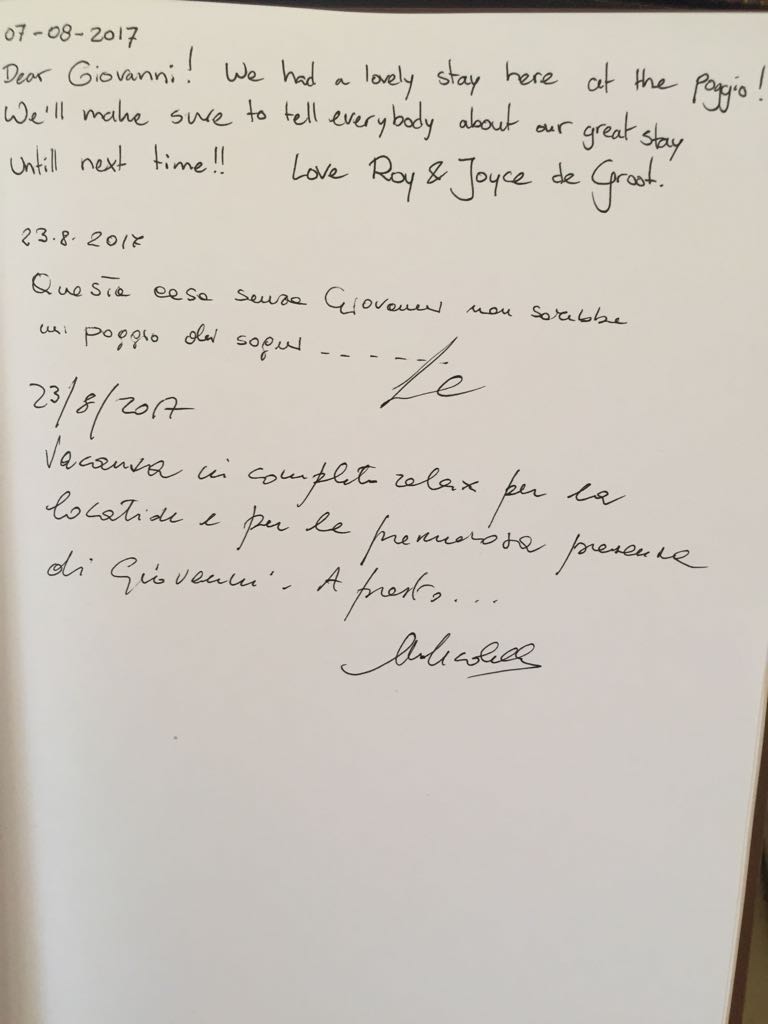 07-08-2017
Dear Giovanni! We had a lovely stay here at the Poggio!
We'll make sure to tell everybody about our great stay
Untill next time!! Love Roy & Joyce de Groot.
23.8.2017
Questa casa senza Giovanni non sarebbe
un poggio dei sogni ------
23/8/2017
Vacanza in completo relax per la
location e per la premurosa presenza
di Giovanni. A presto...